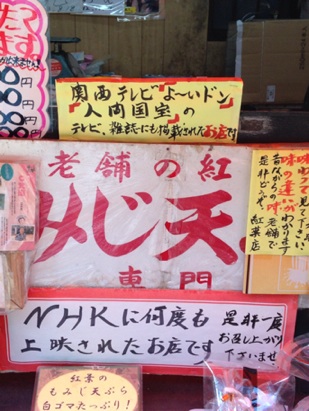 関西テレビよ〜いドン
「人間国宝」の
テレビ、雑誌にも掲載されたお店です
老舗の紅
みじ天
専門
味わって見て下さい
味の違いがわかります
昔ながらの味、老舗で
是非どうぞ。
紅葉店
NHKに何度も
上映されたお店です
是非一度
お召し上がり
下さいませ
紅葉の
もみじ天ぷら
白ゴマたっぷり！